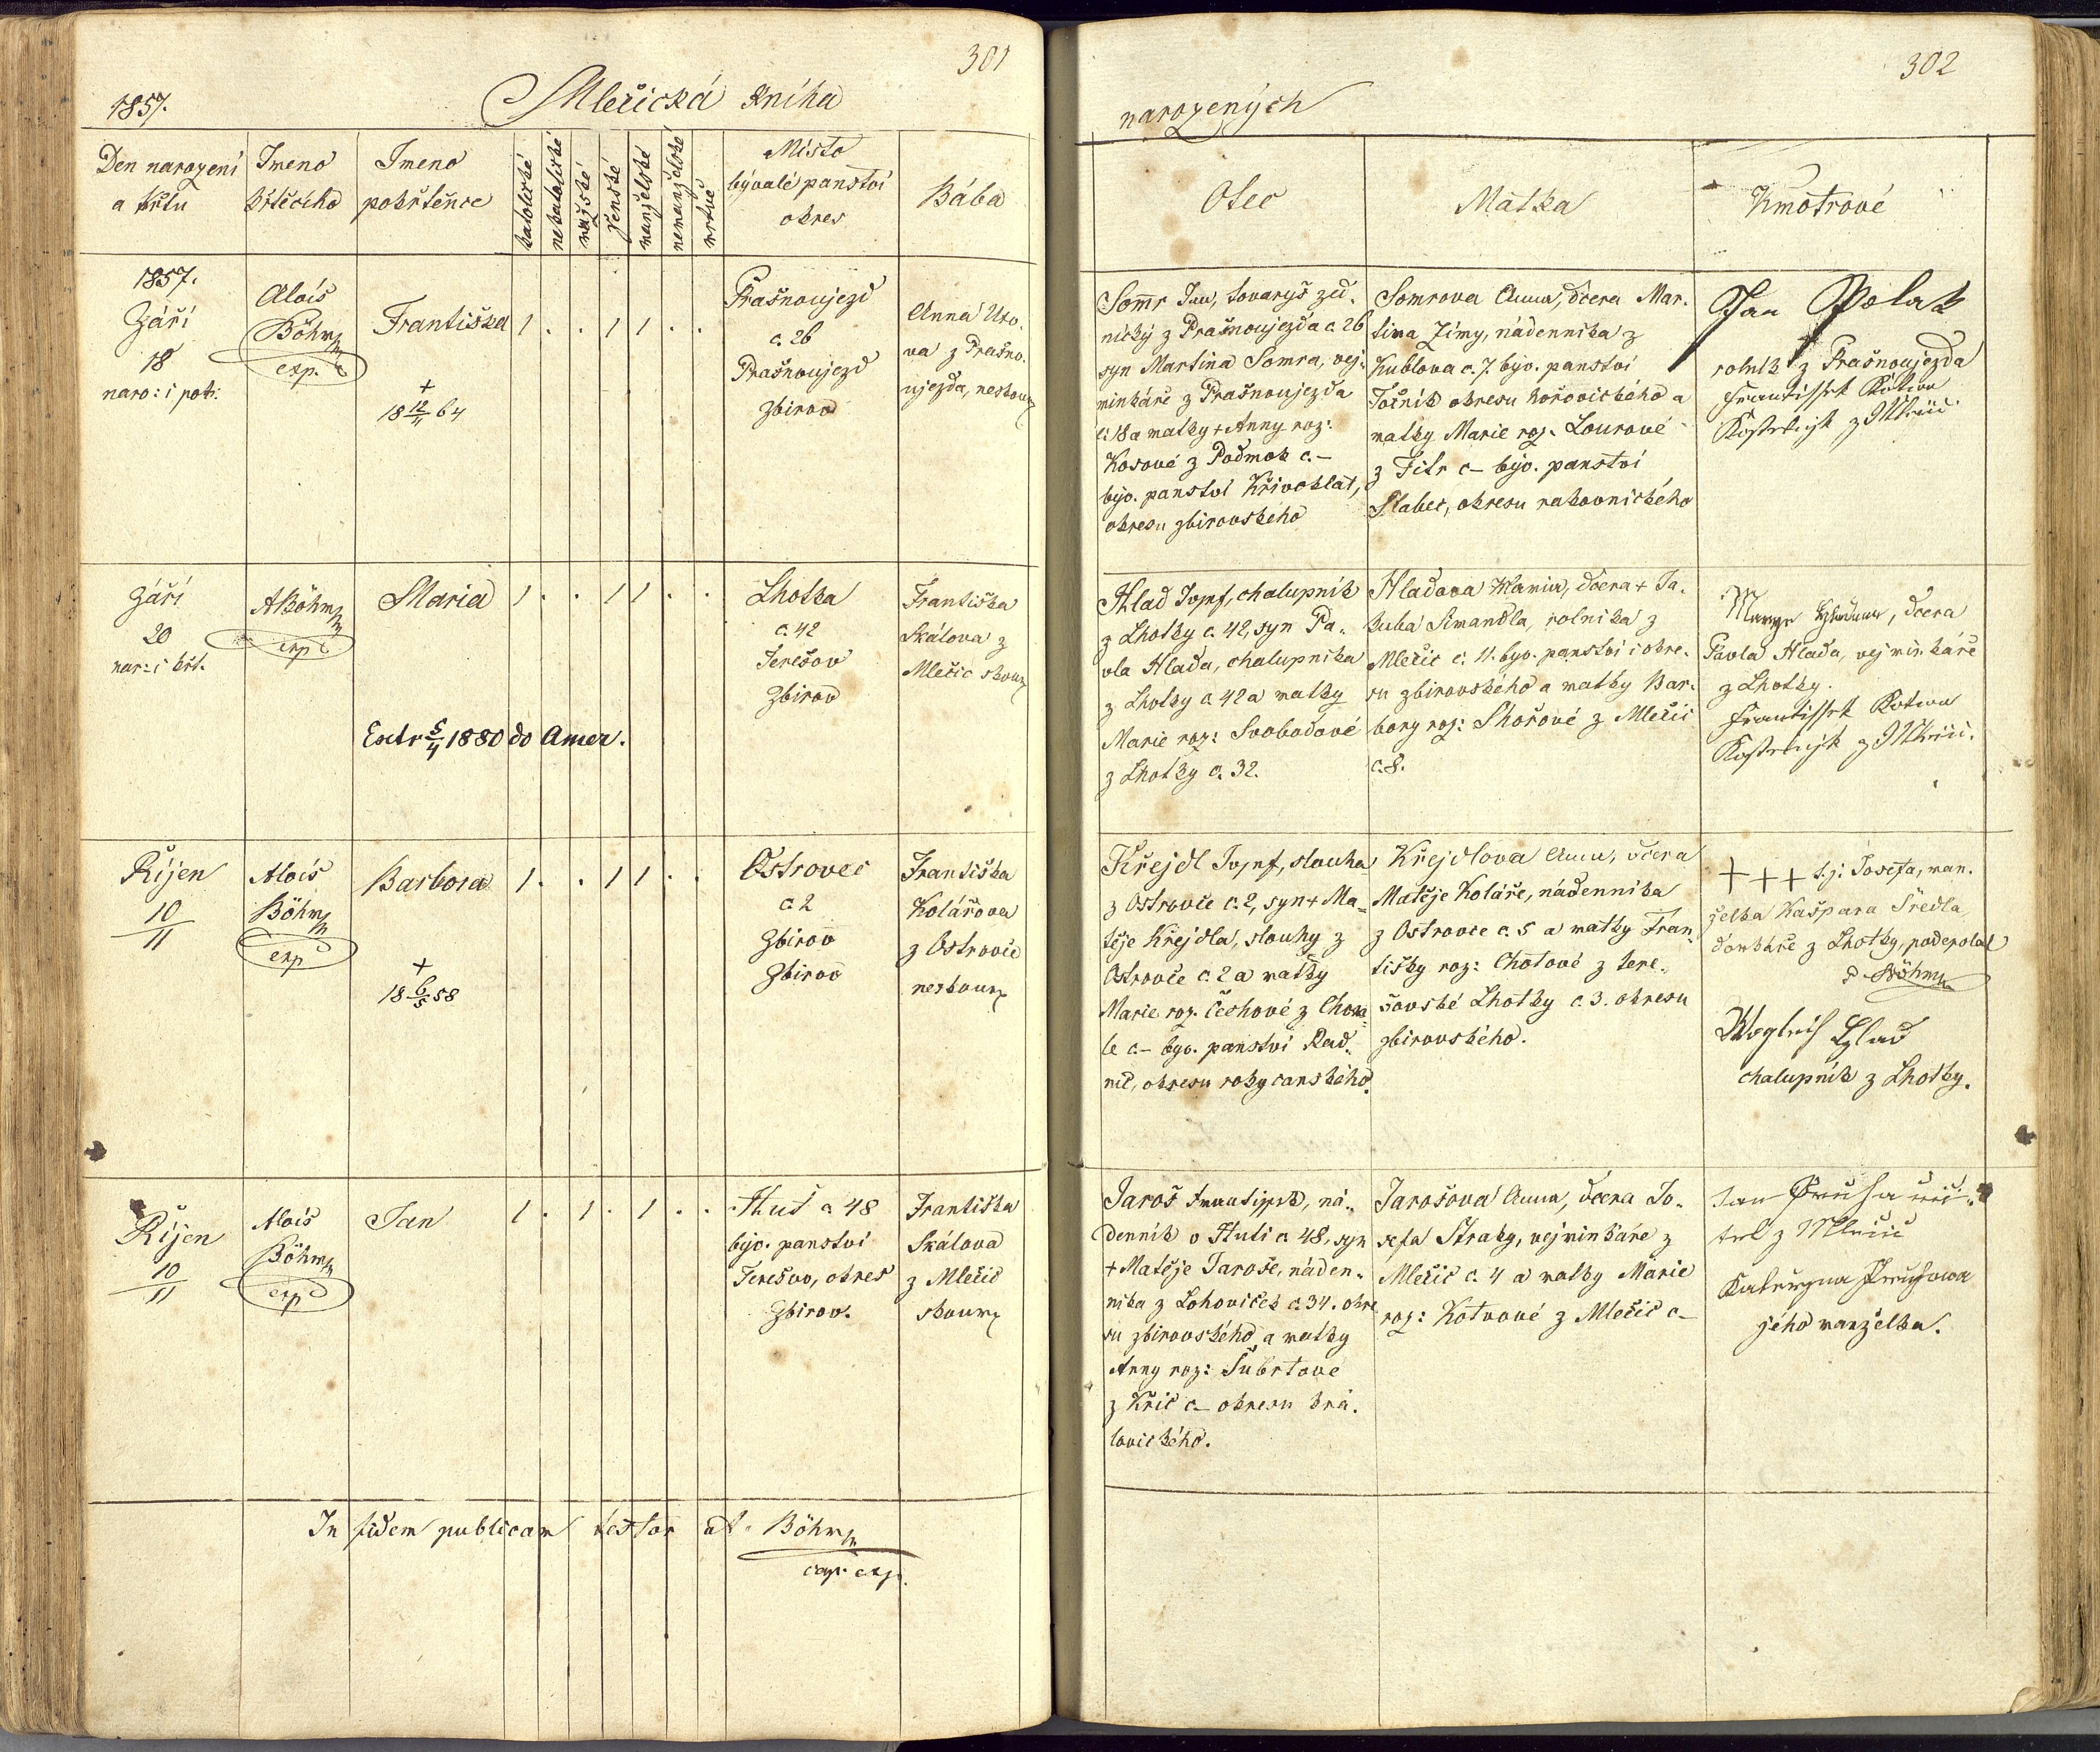 301
1857.
Mlečická Kniha
Den narození
a křtu
Jmeno
křtícího
Jmeno
pokřtěnce
katolické
nekatolické
mužské
ženské
manželské
nemanželské
mrtvé
Místo
bývalé panství
okres
Bába
1857.
Září
18
naro: i pok:
Alois
Böhm
exp.
Františka
1 . . 1 1 . .
+
18 12/11 64
Prašnoujezd
c. 26
Prašnoujezd
Zbirov
Anna
va z Prašno-
ujezda, neskouz
Září
20
nar: i křt.
A Böhm
exp
Maria
1 . . 1 1 . .
Extr 5/4 1880 do Amer.
Lhotka
c. 42
Terešov
Zbirov
Františka
Skálova z
Mlečic skouz
Říjen
10
11
Alois
Böhm
exp
Barbora
1 . . 1 1 . .
+
18 6/5 58
Ostrovec
c. 2
Zbirov
Zbirov
Františka
Kolářova
z Ostrovce
neskouz
Říjen
10
11
Alois
Böhm
exp
Jan
1 . 1 . 1 . .
Huť c 48
býv. panství
Terešov, okres
Zbirov.
Františka
Skálova
z Mlečic
skouz
In fidem publicam testor at. Böhm
cap. exp.
302
narozených
Otec
Mátka
Kmotrové
Somr Jan, tovaryš zed-
nický z Prašnoujezda c. 26
syn Martina Somra, vej-
minkáře z Prašnoujezda
c: 18 a matky + Anny roz:
Kosové z Podmok c. –
býv. panství Křivoklat,
okresu zbirovského
Somrova Anna, dcera Mar-
tina Zímy, nádenníka z
Kublova c. 7 býv. panství
Točník okresu hořovického a
matky Marie roz. Lourové
z Filr c – býv. panství
Slabec, okresu rakovnického
Jan Polak
rolník z Prašnoujezda
Frantisſek Kotwa
Kostelnjk z Mlečic
Hlad Josef, chalupník
z Lhotky c. 42, syn Pa-
vla Hlada, chalupníka
z Lhotky c. 42 a matky
Marie roz: Svobodové
z Lhotky c. 32.
Hladova Maria, dcera + Ja-
kuba Simandla, rolníka z
Mlečic c. 11. býv. panství i okre-
su zbirovského a matky Bar-
bory roz: Skořové z Mlečic
c. 8.
dcera
Pavla Hlada, vejminkáře
z Lhotky.
Frantisſek Kotwa
Kostelnjk z Mlečic.
Křejdl Josef, slouha
z Ostrovce c. 2, syn + Ma-
těje Křejdla, slouhy z
Ostrovce c. 2 a matky
Marie roz. Čechové z Chom-
le c. – býv. panství Rad-
nic, okresu rokycanského.
Křejdlova Anna, dcera
Matěje Koláře, nádenníka
z Ostrovce c. 5 a matky Fran-
tišky roz: Chotové z tere-
šovské Lhotky c. 3. okresu
zbirovského.
+++ t. j. Josefa, man-
želka Kašpara Šredla,
domkáře z Lhotky, podepsal
Böhm
Wogtěch Hlad
chalupník z Lhotky.
Jaroš Frantisſek, ná-
denník v Huti c. 48, syn
+ Matěje Jaroše, náden-
níka z Lohoviček c. 34. okre
su zbirovského a matky
Anny roz: Šubrtové
z Křic c – okresu krá-
lovického.
Jarošova Anna, dcera Jo-
sefa Straky, vejminkáře z
Mlečic c. 4 a matky Marie
roz: Kotvové z Mlečic c –
Jan Průſa uči-
tel z Mlečic
Kateřyna Průſowa
jeho manželka.